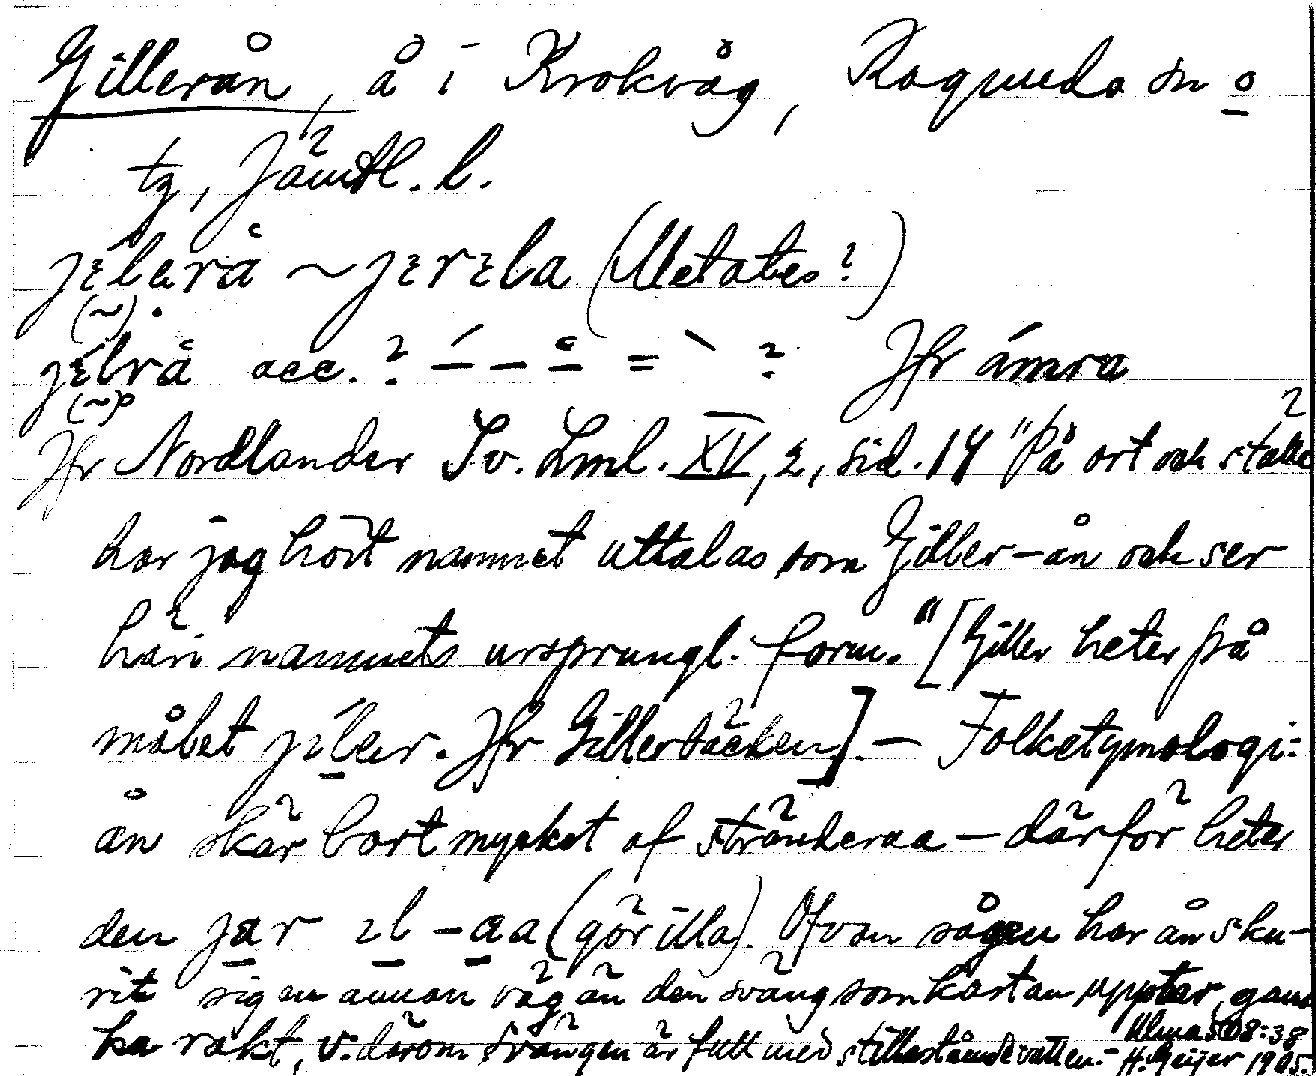 Gillerån, å i Krokvåg, Ragunda sn o
tg, Jämtl. l.
jɛlarå ~ jɛrɛla (Metates?)
(~)
jɛlrå acc. ? = ? Jfr ámra
(~)
Jfr Nordlander Sv. Lml. XV, 2, sid. 14 "På ort och ställe
har jag hört namnet uttalas som Giller-ån och ser
häri namnets ursprungl. form." [Giller heter på
målet jílar. Jfr Gillerbäcken]. – Folketymologi:
ån skär bort mycket af stränderna – därför heter
den jar ɿl-aa (gör illa). Ofvan sågen har ån sku-
rit sig en annan väg än den sväng som kartan upptar, gans
ka rakt, v. därom svängen är full med stillastående vatten. –
Ulma 508:38
H. Geijer 1905.